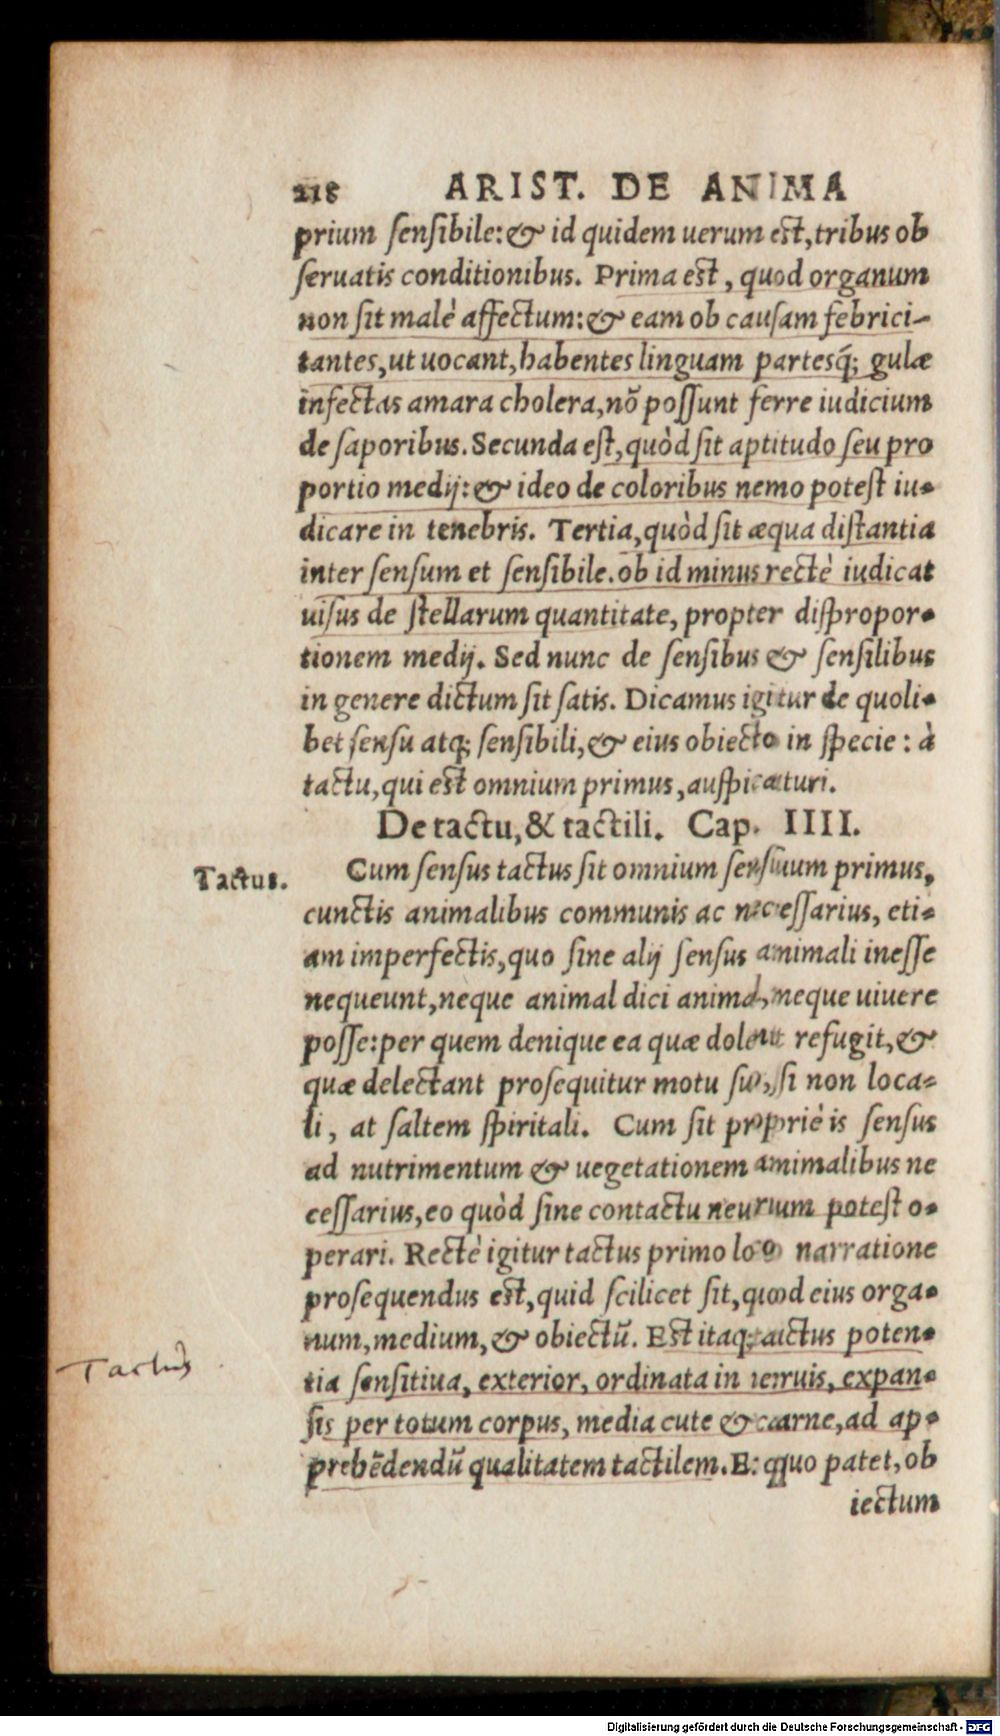 218 ARIST. DE ANIMA
prium sensibile: & id quidem uerum est, tribus ob
seruatis conditionibus. Prima est, quod organum
non sit malè affectum: & eam ob causam febrici-
tantes, ut uocant, habentes linguam partesq́; gulæ
infectas amara cholera, nō possunt ferre iudicium
de saporibus. Secunda est, quòd sit aptitudo seu pro
portio medij: & ideo de coloribus nemo potest iu-
dicare in tenebris. Tertia, quòd sit æqua distantia
inter sensum et sensibile. ob id minus rectè iudicat
uisus de stellarum quantitate, propter dispropor-
tionem medij. Sed nunc de sensibus & sensilibus
in genere dictum sit satis. Dicamus igitur de quoli-
bet sensu atq; sensibili, & eius obiecto in specie: à
tactu, qui est omnium primus, auspicaturi.
De tactu, & tactili. Cap. IIII.
Tactus.
Cum sensus tactus sit omnium sensuum primus,
cunctis animalibus communis ac necessarius, eti-
am imperfectis, quo sine alij sensus animali inesse
nequeunt, neque animal dici animal, neque uiuere
posse: per quem denique ea quæ dolent refugit, &
quæ delectant prosequitur motu suo, si non loca-
li, at saltem spiritali. Cum sit propriè is sensus
ad nutrimentum & uegetationem animalibus ne
cessarius, eo quòd sine contactu neutrum potest o-
perari. Rectè igitur tactus primo loco narratione
prosequendus est, quid scilicet sit, quod eius orga-
num, medium, & obiectū. Est itaq; tactus poten-
Tactus
tia sensitiua, exterior, ordinata in neruis, expan-
sis per totum corpus, media cute & carne, ad ap-
prehēdendū qualitatem tactilem. E: quo patet, ob
iectum
Digitalisierung gefördert durch die Deutsche Forschungsgemeinschaft - DFG